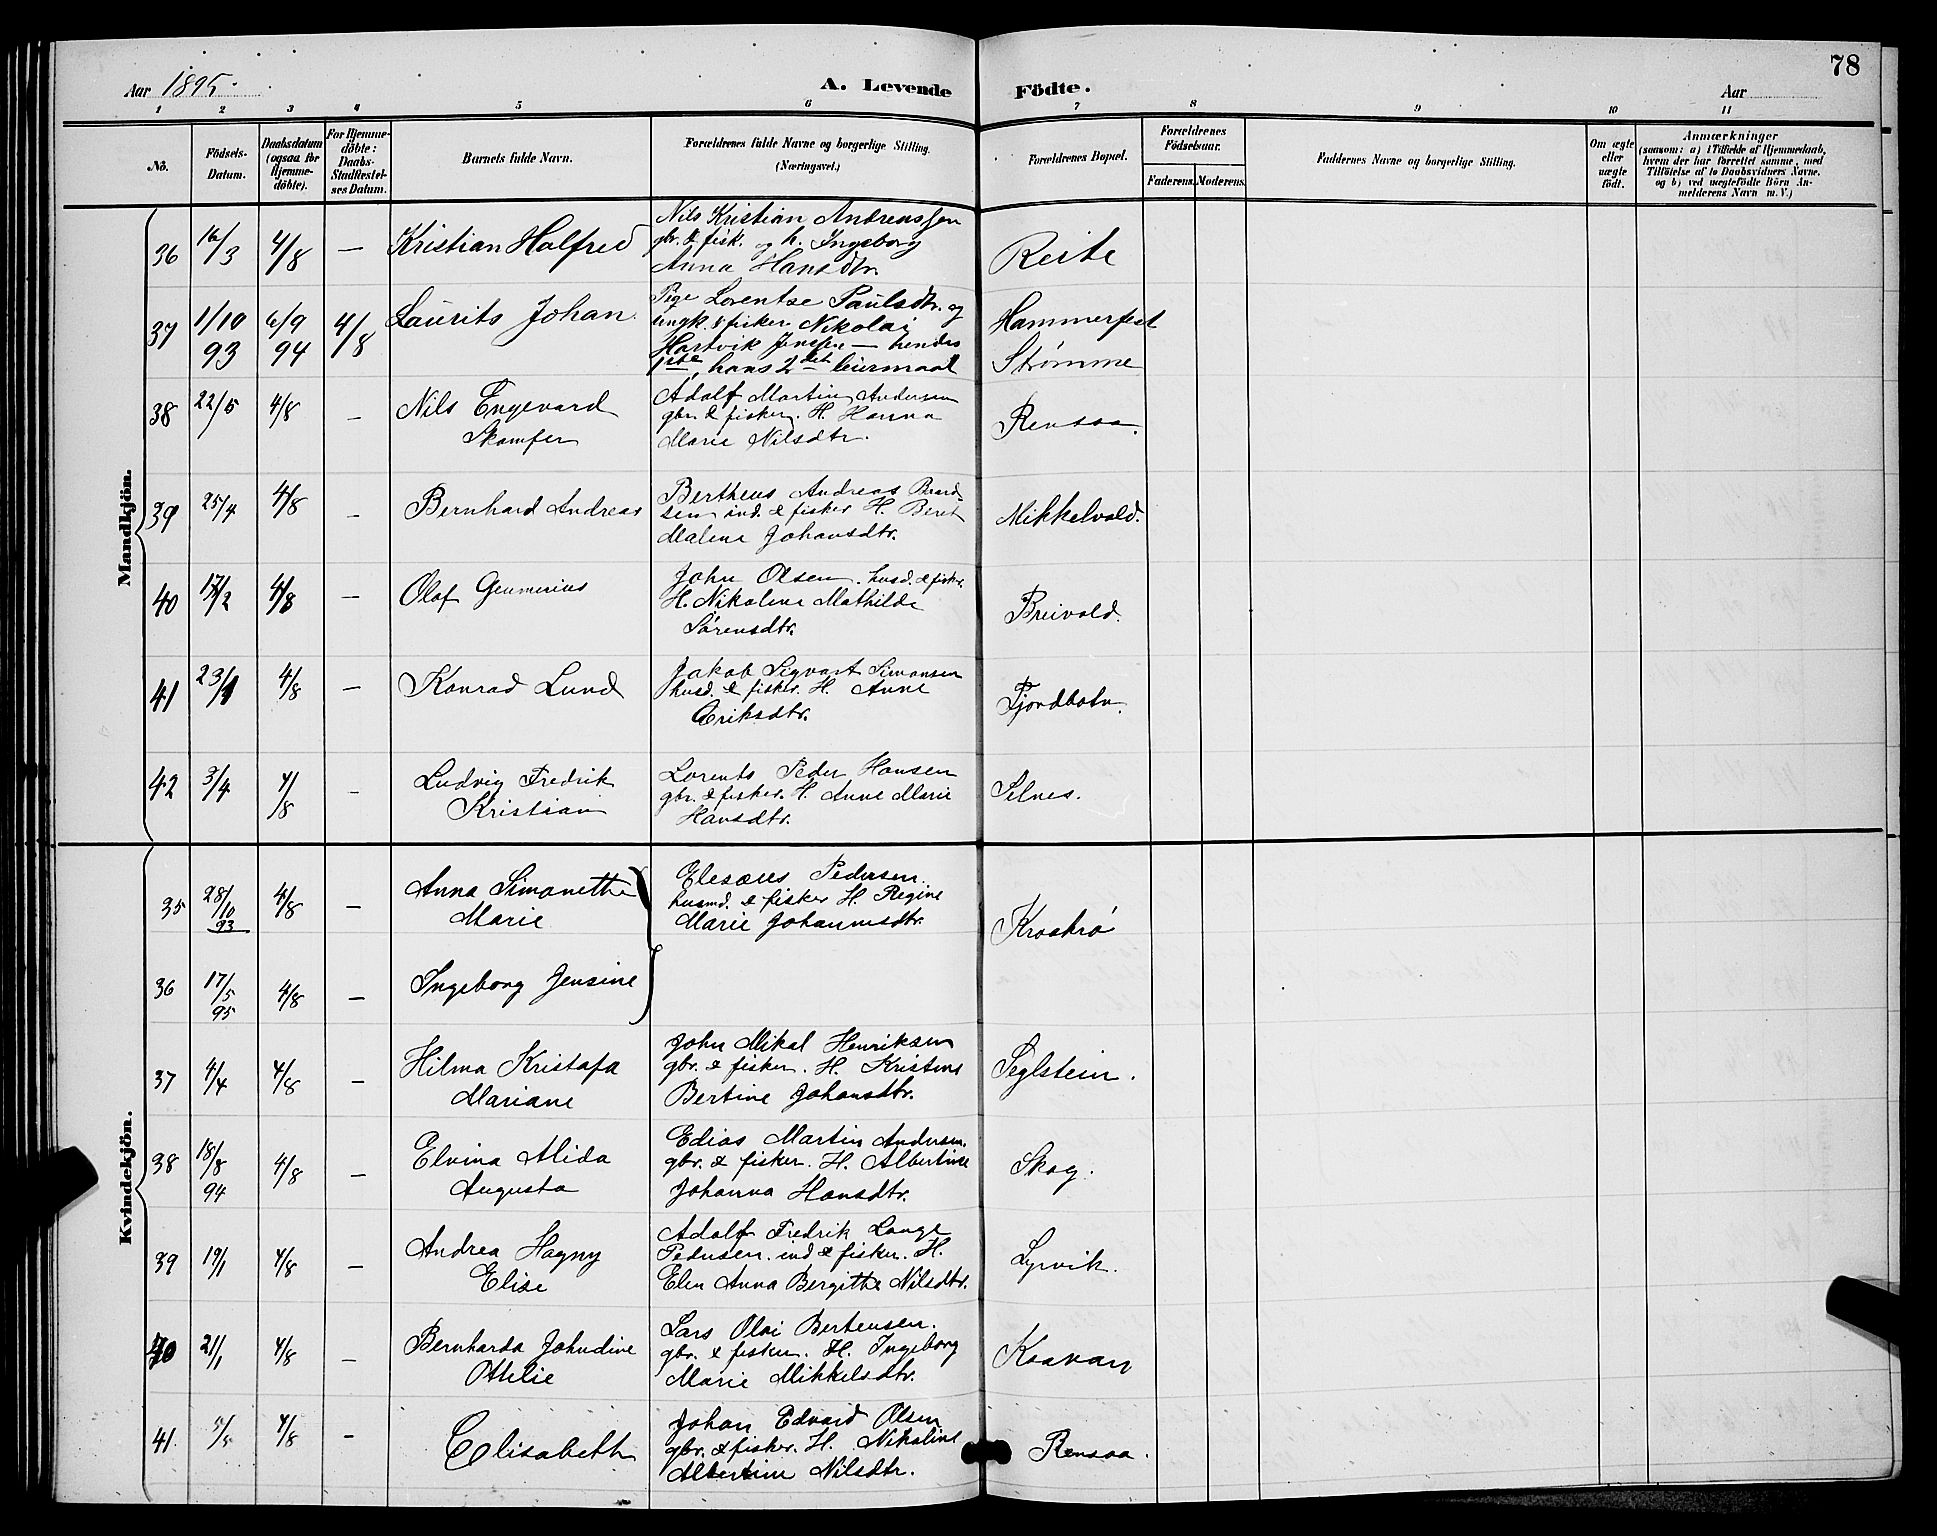 78
Aar 1895. A. Levende Födte. Aar
1 2 3 4 5 6 7 8 9 10 11
Nô.
Födsels-
Datum.
Daabsdatum
(ogsaa for
Hjemme-
döbte).
For Hjemme-
döbte:
Daabs-
Stadfæstel-
ses Datum.
Barnets fulde Navn.
Forældrenes fulde Navne og borgerlige Stilling.
(Næringsvei.)
Forældrenes Bopæl.
Forældrenes
Födselsaar.
Faderens. Moderens.
Faddernes Navne og borgerlige Stilling.
Om ægte
eller
uægte
födt.
Anmærkninger
(saasom: a) i Tilfælde af Hjemmedaab,
hvem der har forrettet samme, med
Tilföielse af to Daabsvidners Navne.
og b) ved uægtefödte Börn An-
melderens Navn m. V.)
Mandkjön.
36 16/3 4/8 — Kristian Halfred
Nils Kristian Andreassen
gbr. & fisk. og h. Ingeborg
Anna Hansdtr.
Reite
37 1/10 93 6/9 94 4/8 Laurits Johan
Pige Lorentse Paulsdtr. og
ungk. & fisker Nikolai
Hartvik Jenssen — hendes
1ste, hans 2det leiermaal
Hammerfest
Strømme
38 22/5 4/8 — Nils Engevard
Skamfer
Adolf Martin Andersen
gbr. & fisker. H. Hanna
Marie Nilsdtr.
Rensaa.
39 25/4 4/8 — Bernhard Andreas
Bertheus Andreas Baard-
sen ind. & fisker H. Beret
Malena Johansdtr.
Mikkelvold.
40 17/2 4/8 — Olaf Genmerius
John Olsen. husd. & fisker.
H. Nikoline Mathilde
Sørensdtr.
Breivold.
41 23/1 4/8 — Konrad Lund
Jakob Sigvart Simonsen
husd. & fisker. H. Anne
Eriksdtr.
Fjordbotn.
42 3/4 4/8 — Ludvig Fredrik
Kristian
Lorents Peder Hansen
gbr. & fisker. H. Anne Marie
Hansdtr.
Selnes.
Kvindekjön.
35 28/10 93 4/8 — Anna Simonethe
Marie
Elesæus Pedersen.
husmd. & fisker H. Regine
Marie Johannesdtr.
Kraakrø
36 17/5 95 4/8 — Ingeborg Jensine
37 4/4 4/8 — Hilma Kristafa
Mariane
John Mikal Henriksen
gbr. & fisker. H. Kristine
Bertine Johansdtr.
Seglstein.
38 18/8 94 4/8 — Elvina Alida
Augusta
Edias Martin Andersen.
gbr. & fisker. H. Albertine
Johanna Hansdtr.
Skog.
39 19/1 4/8 — Andrea Hagny
Elise
Adolf Fredrik Lange
Pedersen. ind & fisker. H.
Elen Anna Bergithe Nilsdtr.
Lysvik.
40 21/1 4/8 — Bernharda Johndine
Otelie
Lars Olai Bertensen.
gbr. & fisker. H. Ingeborg
Marie Mikkelsdtr.
Kaavan
41. 5/5 4/8 — Elisabeth
Johan Edvard Olsen
gbr. & fisker. H. Nikoline
Albertine Nilsdtr.
Rensaa.